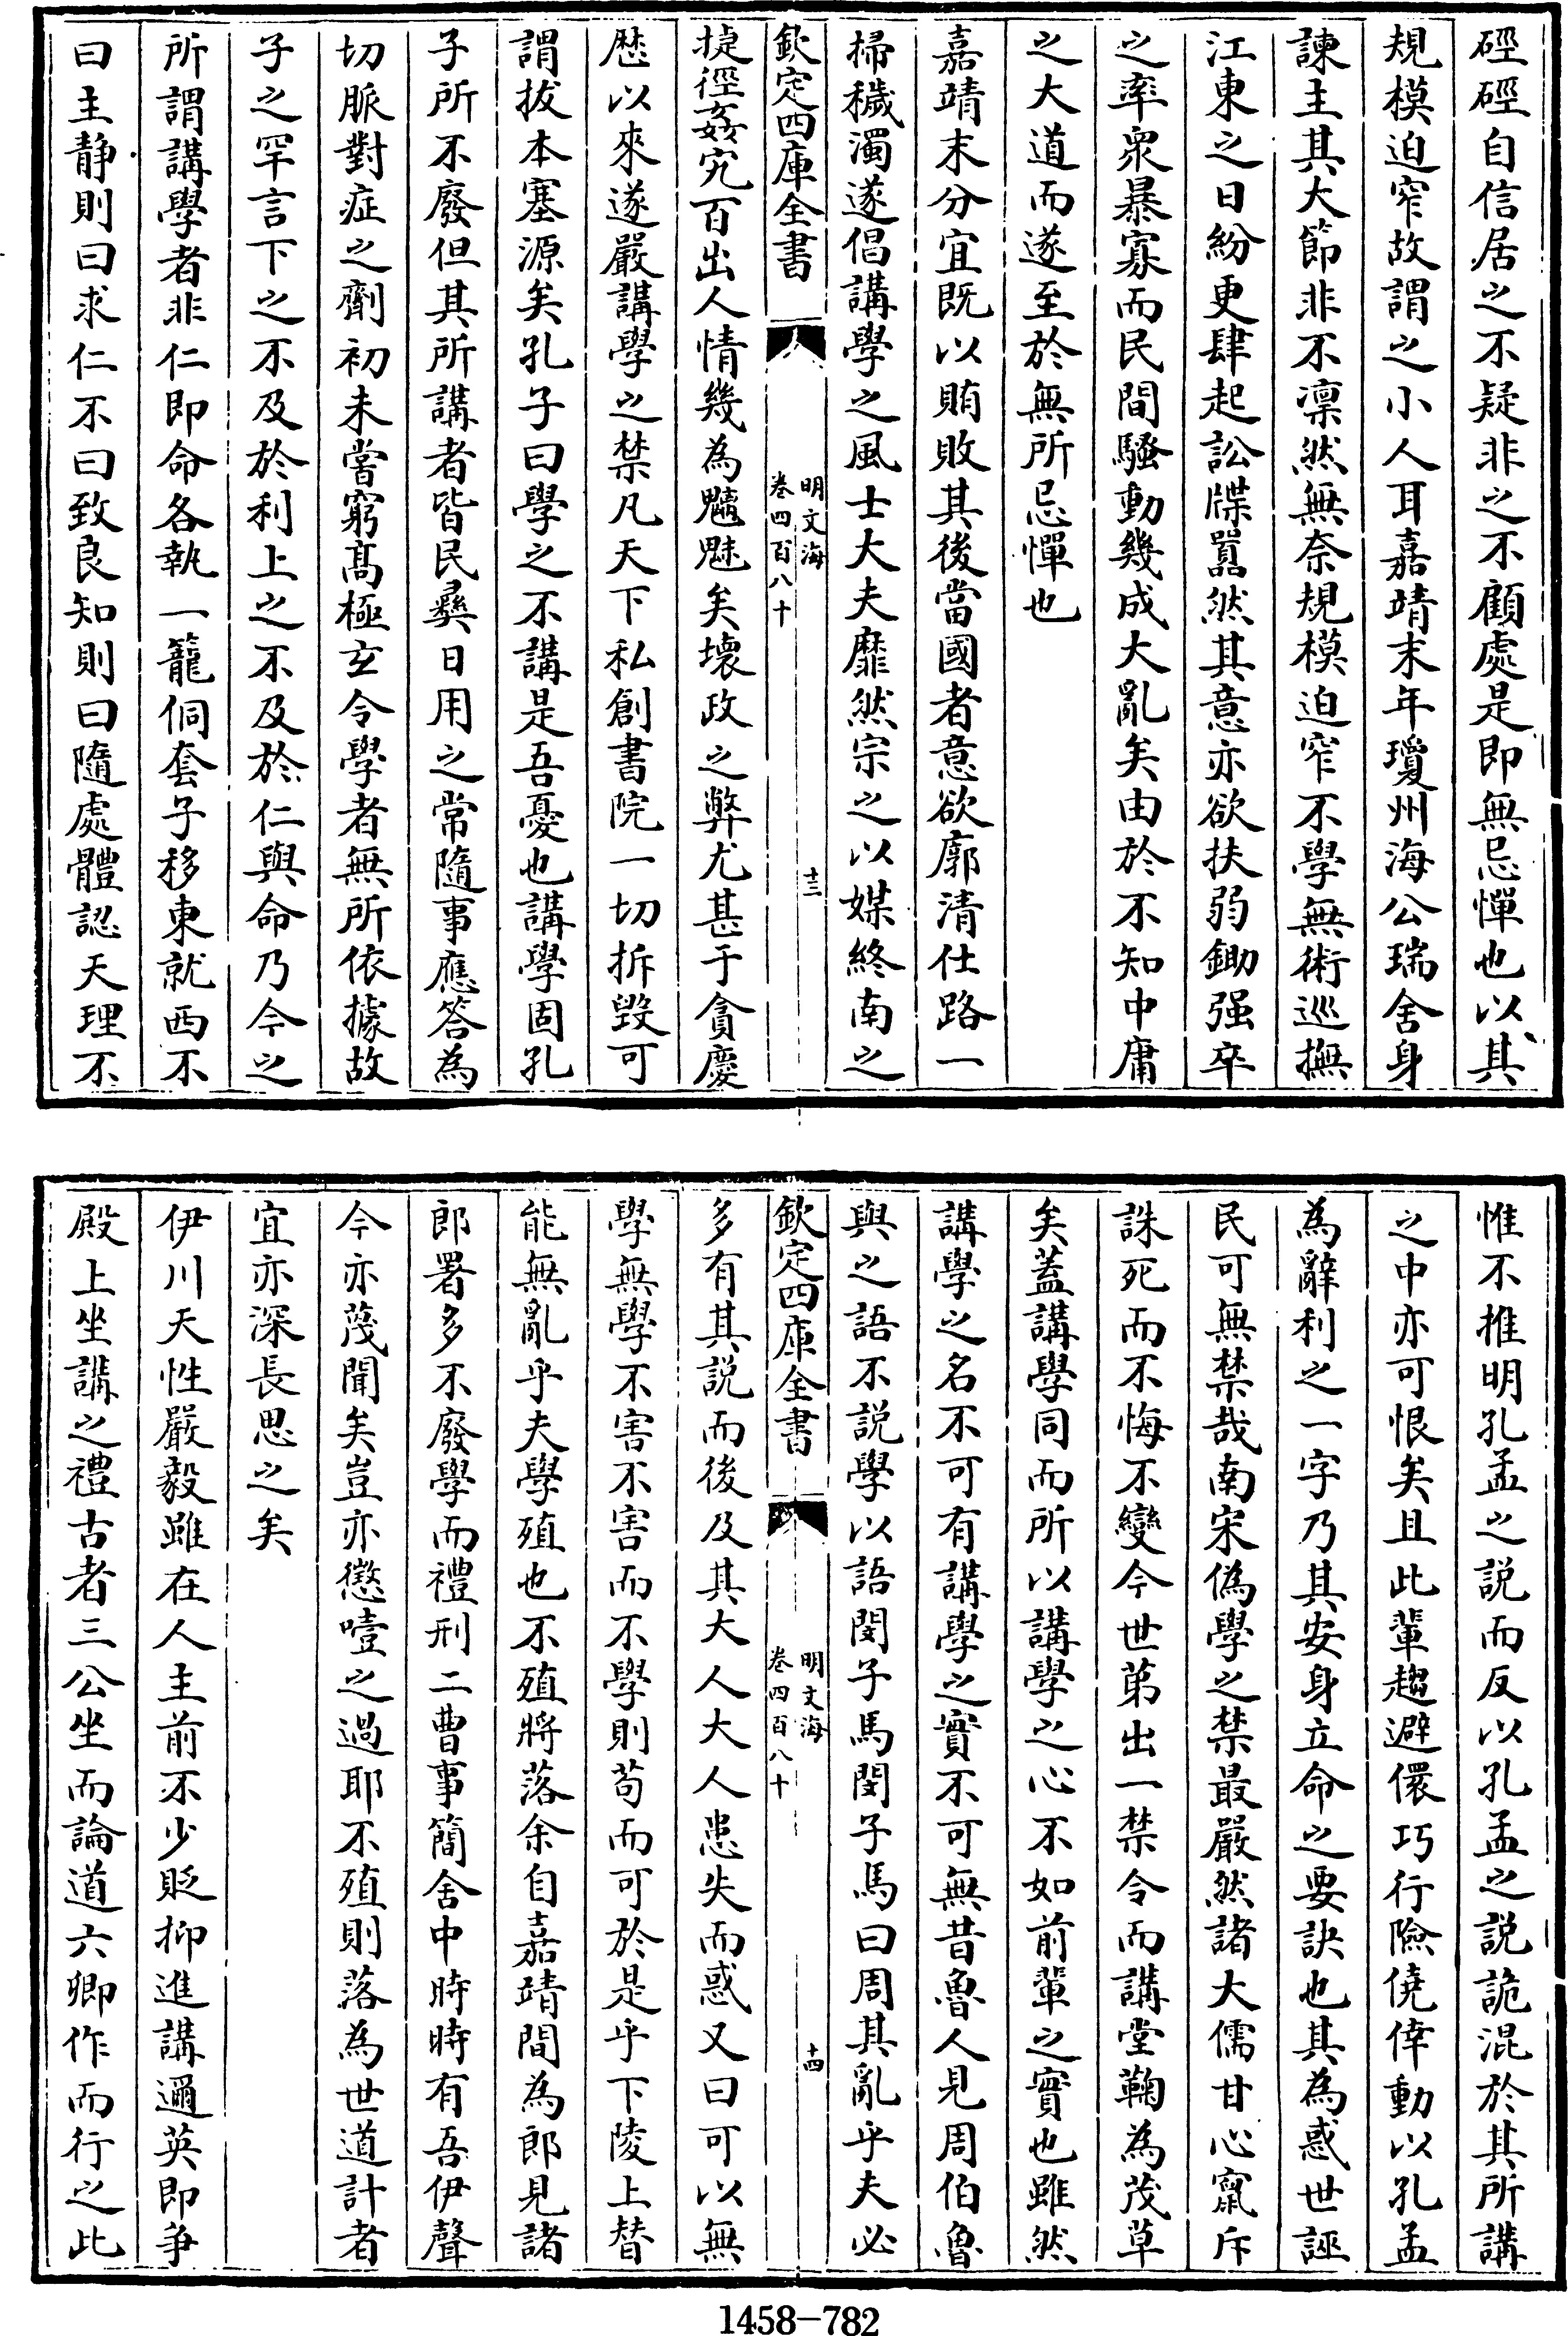 硜硜自信居之不疑非之不顧處是即無忌憚也以其
規模迫窄故謂之小人耳嘉靖末年瓊州海公瑞舍身
諫主其大節非不凛然無奈規模迫窄不學無術巡撫
江東之日紛更肆起訟牒囂然其意亦欲扶弱鋤强卒
之率衆暴寡而民間騷動幾成大亂矣由於不知中庸
之大道而遂至於無所忌憚也
嘉靖末分宜既以賄敗其後當國者意欲廓清仕路一
掃穢濁遂倡講學之風士大夫靡然宗之以媒終南之
欽定四庫全書
明文海
卷四百八十
十三
捷徑姦宄百出人情幾為魑魅矣壞政之弊尤甚于貪慶
厯以來遂嚴講學之禁凡天下私創書院一切拆毀可
謂拔本塞源矣孔子曰學之不講是吾憂也講學固孔
子所不廢但其所講者皆民彝日用之常隨事應答為
切脈對症之劑初未嘗窮髙極玄令學者無所依據故
子之罕言下之不及於利上之不及於仁與命乃今之
所謂講學者非仁即命各執一籠侗套子移東就西不
曰主静則曰求仁不曰致良知則曰隨處體認天理不
惟不推明孔孟之説而反以孔孟之説詭混於其所講
之中亦可恨矣且此輩趨避儇巧行險僥倖動以孔孟
為辭利之一字乃其安身立命之要訣也其為惑世誣
民可無禁哉南宋偽學之禁最嚴然諸大儒甘心竄斥
誅死而不悔不變今世第出一禁令而講堂鞠為茂草
矣蓋講學同而所以講學之心不如前輩之實也雖然
講學之名不可有講學之實不可無昔魯人見周伯魯
與之語不説學以語閔子馬閔子馬曰周其亂乎夫必
欽定四庫全書
明文海
卷四百八十
十四
多有其説而後及其大人大人患失而惑又曰可以無
學無學不害不害而不學則苟而可於是乎下陵上替
能無亂乎夫學殖也不殖將落余自嘉靖間為郎見諸
郎署多不廢學而禮刑二曹事簡舍中時時有吾伊聲
今亦蔑聞矣豈亦懲噎之過耶不殖則落為世道計者
宜亦深長思之矣
伊川天性嚴毅雖在人主前不少貶抑進講邇英即爭
殿上坐講之禮古者三公坐而論道六卿作而行之此
1458-782